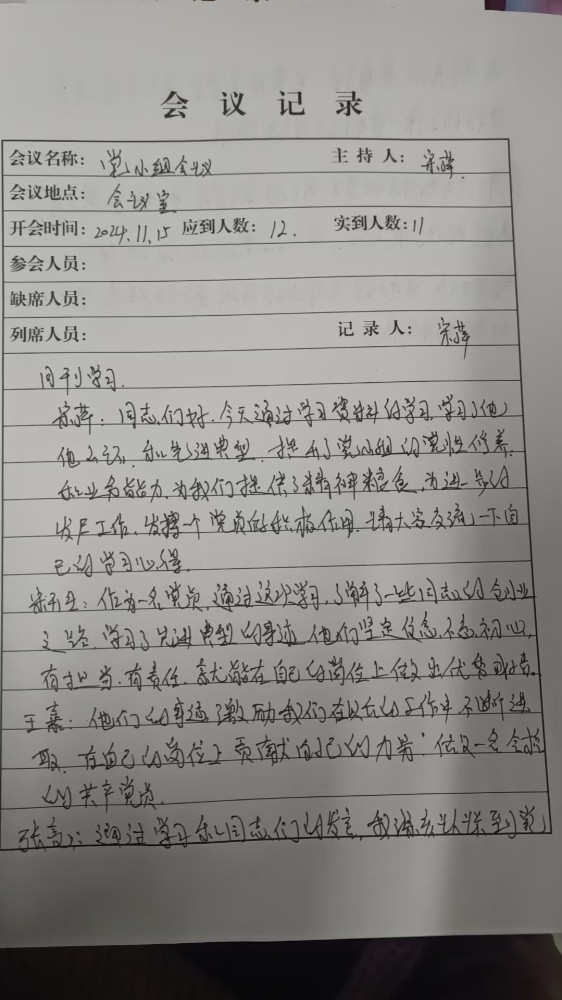 会议记录
会议名称：党小组会议 主持人：宋萍.
会议地点：会议室
开会时间：2024.11.15 应到人数：12. 实到人数：11
参会人员：
缺席人员：
列席人员： 记录人：宋萍
周刊学习.
宋萍：同志们好.今天通过学习资料的学习，学习了他
和先进典型，提升了党小组的党性修养.
和业务能力，为我们提供了精神粮食，为进一步的
发尸工作，发挥一个党员的积极作用.请大家交流一下自
己的学习心得.
：作为一名党员，通过这次学习，了解了一些同志的创业
之路，学习了先进典型的事迹，他们坚定信念，不忘初心，
有担当，有责任，就能在自己的岗位上做出优秀
王嘉：他们的事迹激励我们在以后的工作中，不断进
取，在自己的岗位上贡献自己的力量！做好一名合格
的共产党员.
：通过学习和同志们的发言，我深刻认识到党